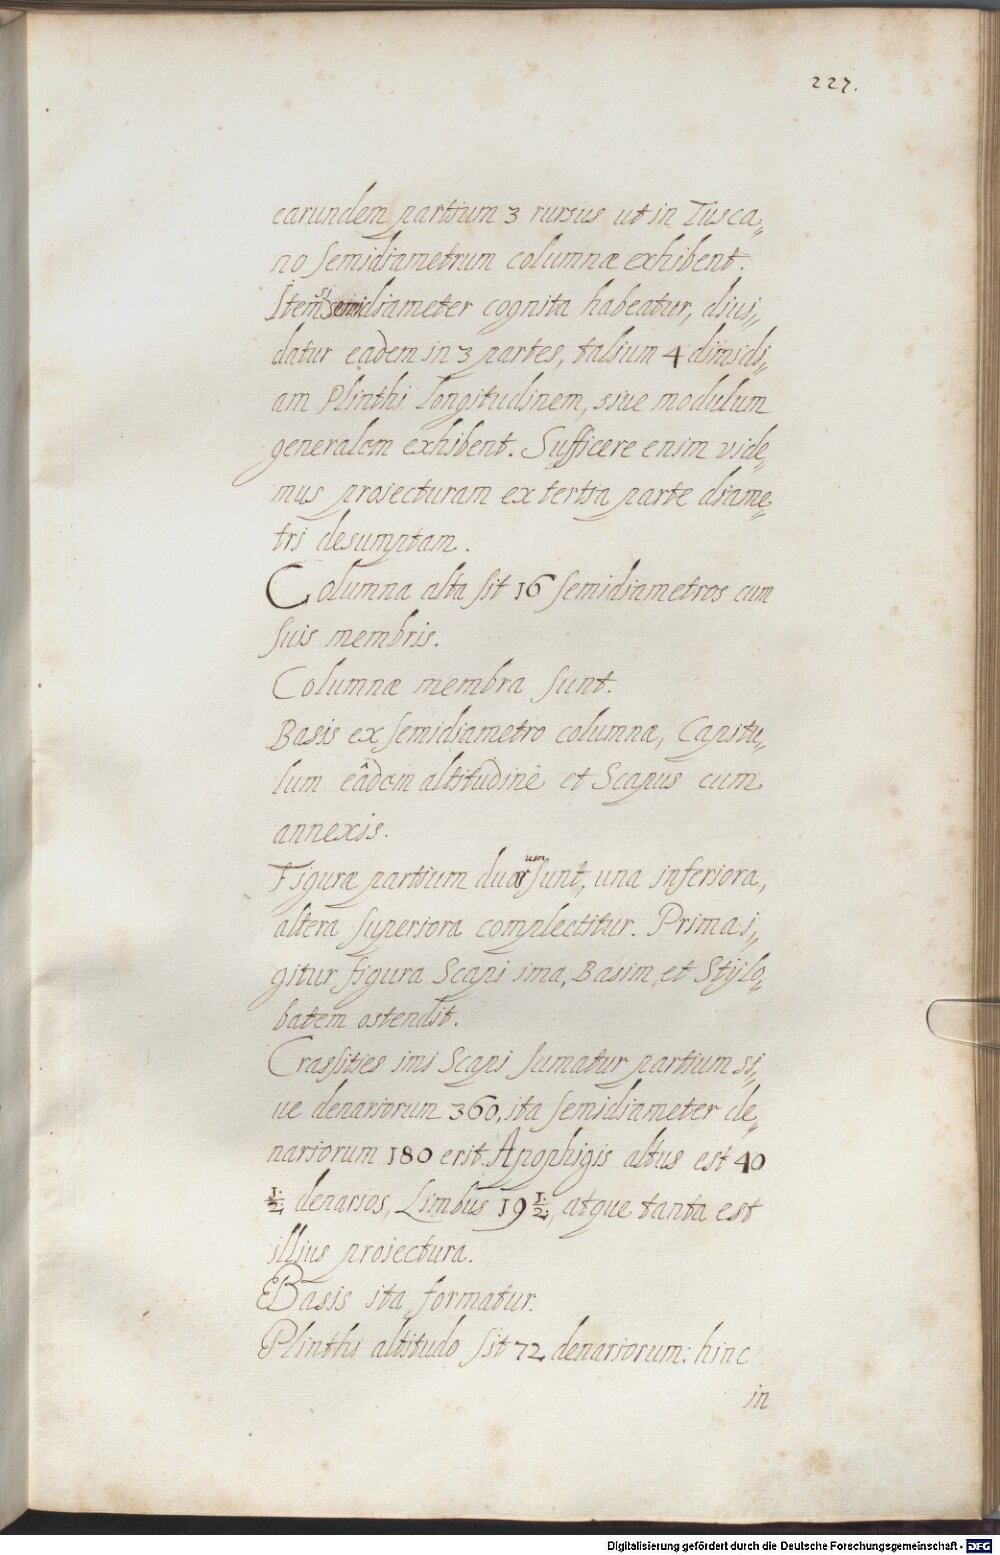 227.
earundem partium 3 rursus ut in Tusca„
no semidiametrum columnæ exhibent.
Item si semidiameter cognita habeatur, diui„
datur eadem in 3 partes, talium 4 dimidi„
am Plinthi longitudinem, siue modulum
generalem exhibent. Sufficere enim vide„
mus projecturam ex tertia parte diame„
tri desumptam.
Columna alta sit 16 semidiametros cum
suis membris.
Columnæ membra sunt.
Basis ex semidiametro columnæ, Capitu„
lum eâdem altitudine et Scapus cum
annexis.
Figuræ partium duarum sunt, una inferiora,
altera superiora complectitur. Prima i„
gitur figura Scapi ima, Basim, et Stÿlo„
batem ostendit.
Crassities imi Scapi sumatur partium si„
ue denariorum 360, ita semidiameter de„
nariorum 180 erit. Apophigis altus est 40
1/2 denarios, Limbus 19 1/2, atque tanta est
illius projectura.
Basis ita formatur.
Plinthi altitudo sit 72 denariorum: hinc
in
Digitalisierung gefördert durch die Deutsche Forschungsgemeinschaft - DFG